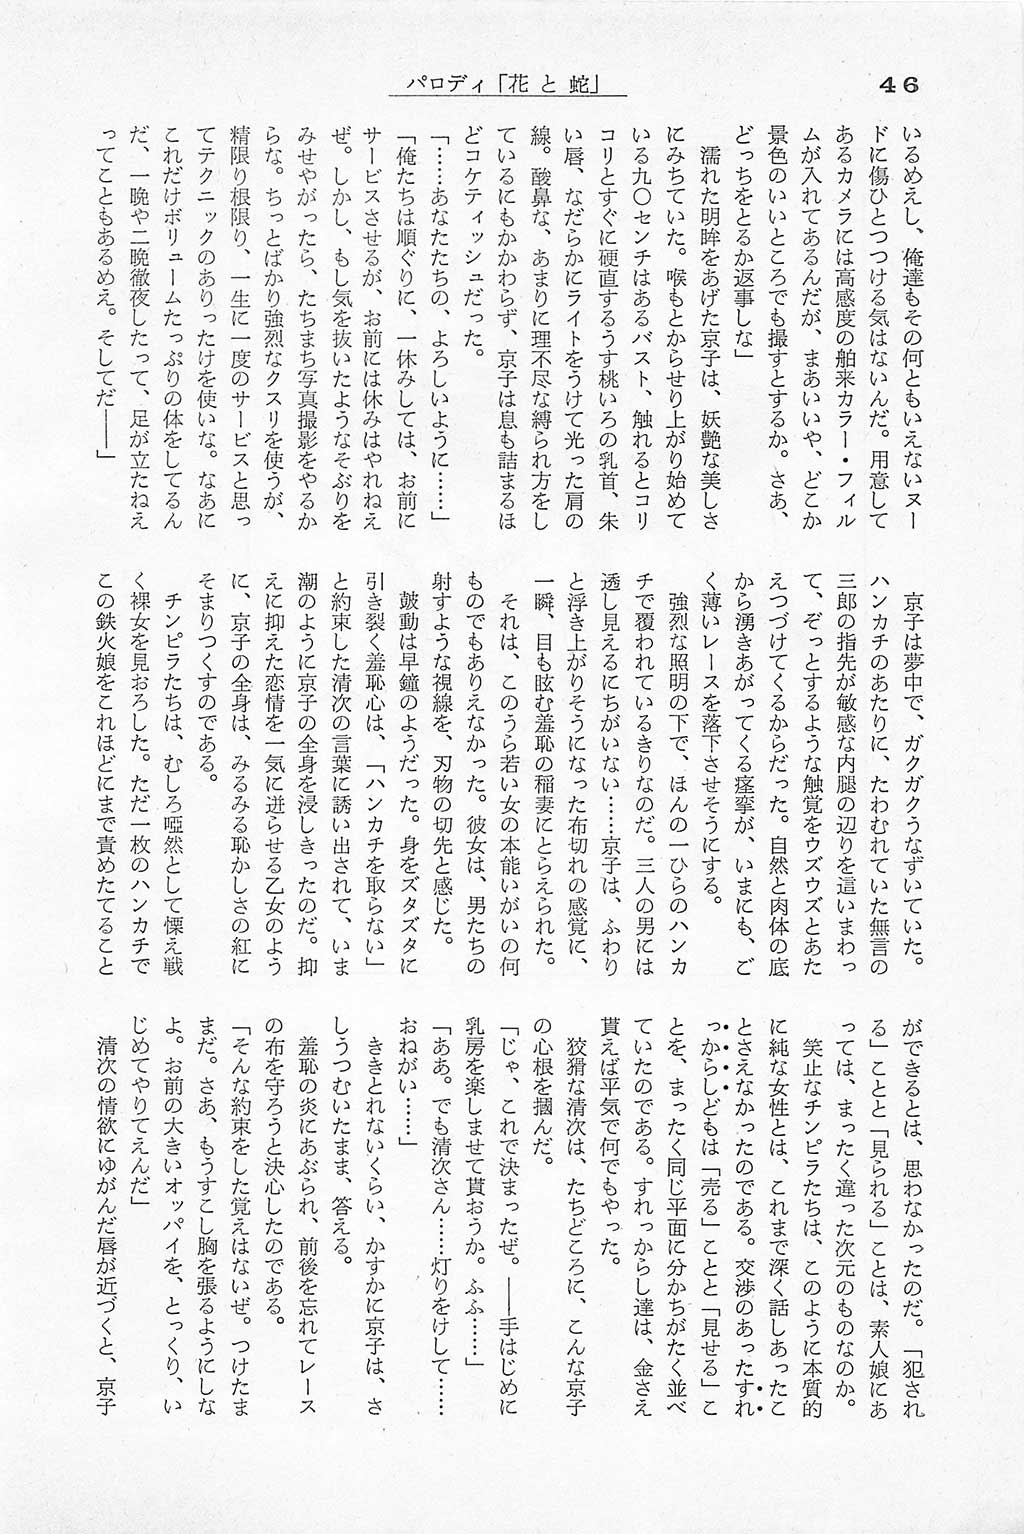 46
パロディ「花と蛇」
いるめえし、俺達もその何ともいえないヌー
ドに傷ひとつつける気はないんだ。用意して
あるカメラには高感度の舶来カラー・フィル
ムが入れてあるんだが、まあいいや、どこか
景色のいいところでも撮すとするか。さあ、
どっちをとるか返事しな」
濡れた明眸をあげた京子は、妖艶な美しさ
にみちていた。喉もとからせり上がり始めて
いる九〇センチはあるバスト、触れるとコリ
コリとすぐに硬直するうす桃いろの乳首、朱
い唇、なだらかにライトをうけて光った肩の
線。酸鼻な、あまりに理不尽な縛られ方をし
ているにもかかわらず、京子は息も詰まるほ
どコケティッシュだった。
「……あなたたちの、よろしいように……」
「俺たちは順ぐりに、一休みしては、お前に
サービスさせるが、お前には休みはやれねえ
ぜ。しかし、もし気を抜いたようなそぶりを
みせやがったら、たちまち写真撮影をやるか
らな。ちっとばかり強烈なクスリを使うが、
精限り根限り、一生に一度のサービスと思っ
てテクニックのありったけを使いな。なあに
これだけボリュームたっぷりの体をしてるん
だ、一晩や二晩徹夜したって、足が立たねえ
ってこともあるめえ。そしてだ――」
京子は夢中で、ガクガクうなずいていた。
ハンカチのあたりに、たわむれていた無言の
三郎の指先が敏感な内腿の辺りを這いまわっ
て、ぞっとするような触覚をウズウズとあた
えつづけてくるからだった。自然と肉体の底
から湧きあがってくる痙攣が、いまにも、ご
く薄いレースを落下させそうにする。
強烈な照明の下で、ほんの一ひらのハンカ
チで覆われているきりなのだ。三人の男には
透し見えるにちがいない……京子は、ふわり
と浮き上がりそうになった布切れの感覚に、
一瞬、目も眩む羞恥の稲妻にとらえられた。
それは、このうら若い女の本能いがいの何
ものでもありえなかった。彼女は、男たちの
射すような視線を、刃物の切先と感じた。
皷動は早鐘のようだった。身をズタズタに
引き裂く羞恥心は、「ハンカチを取らない」
と約束した清次の言葉に誘い出されて、いま
潮のように京子の全身を浸しきったのだ。抑
えに抑えた恋情を一気に迸らせる乙女のよう
に、京子の全身は、みるみる恥かしさの紅に
そまりつくすのである。
チンピラたちは、むしろ啞然として慄え戦
く裸女を見おろした。ただ一枚のハンカチで
この鉄火娘をこれほどにまで責めたてること
ができるとは、思わなかったのだ。「犯され
る」ことと「見られる」ことは、素人娘にあ
っては、まったく違った次元のものなのか。
笑止なチンピラたちは、このように本質的
に純な女性とは、これまで深く話しあったこ
とさえなかったのである。交渉のあったすれ
っからしどもは「売る」ことと「見せる」こ
とを、まったく同じ平面に分かちがたく並べ
ていたのである。すれっからし達は、金さえ
貰えば平気で何でもやった。
狡猾な清次は、たちどころに、こんな京子
の心根を摑んだ。
「じゃ、これで決まったぜ。――手はじめに
乳房を楽しませて貰おうか。ふふ……」
「ああ。でも清次さん……灯りをけして……
おねがい……」
ききとれないくらい、かすかに京子は、さ
しうつむいたまま、答える。
羞恥の炎にあぶられ、前後を忘れてレース
の布を守ろうと決心したのである。
「そんな約束をした覚えはないぜ。つけたま
まだ。さあ、もうすこし胸を張るようにしな
よ。お前の大きいオッパイを、とっくり、い
じめてやりてえんだ」
清次の情欲にゆがんだ唇が近づくと、京子